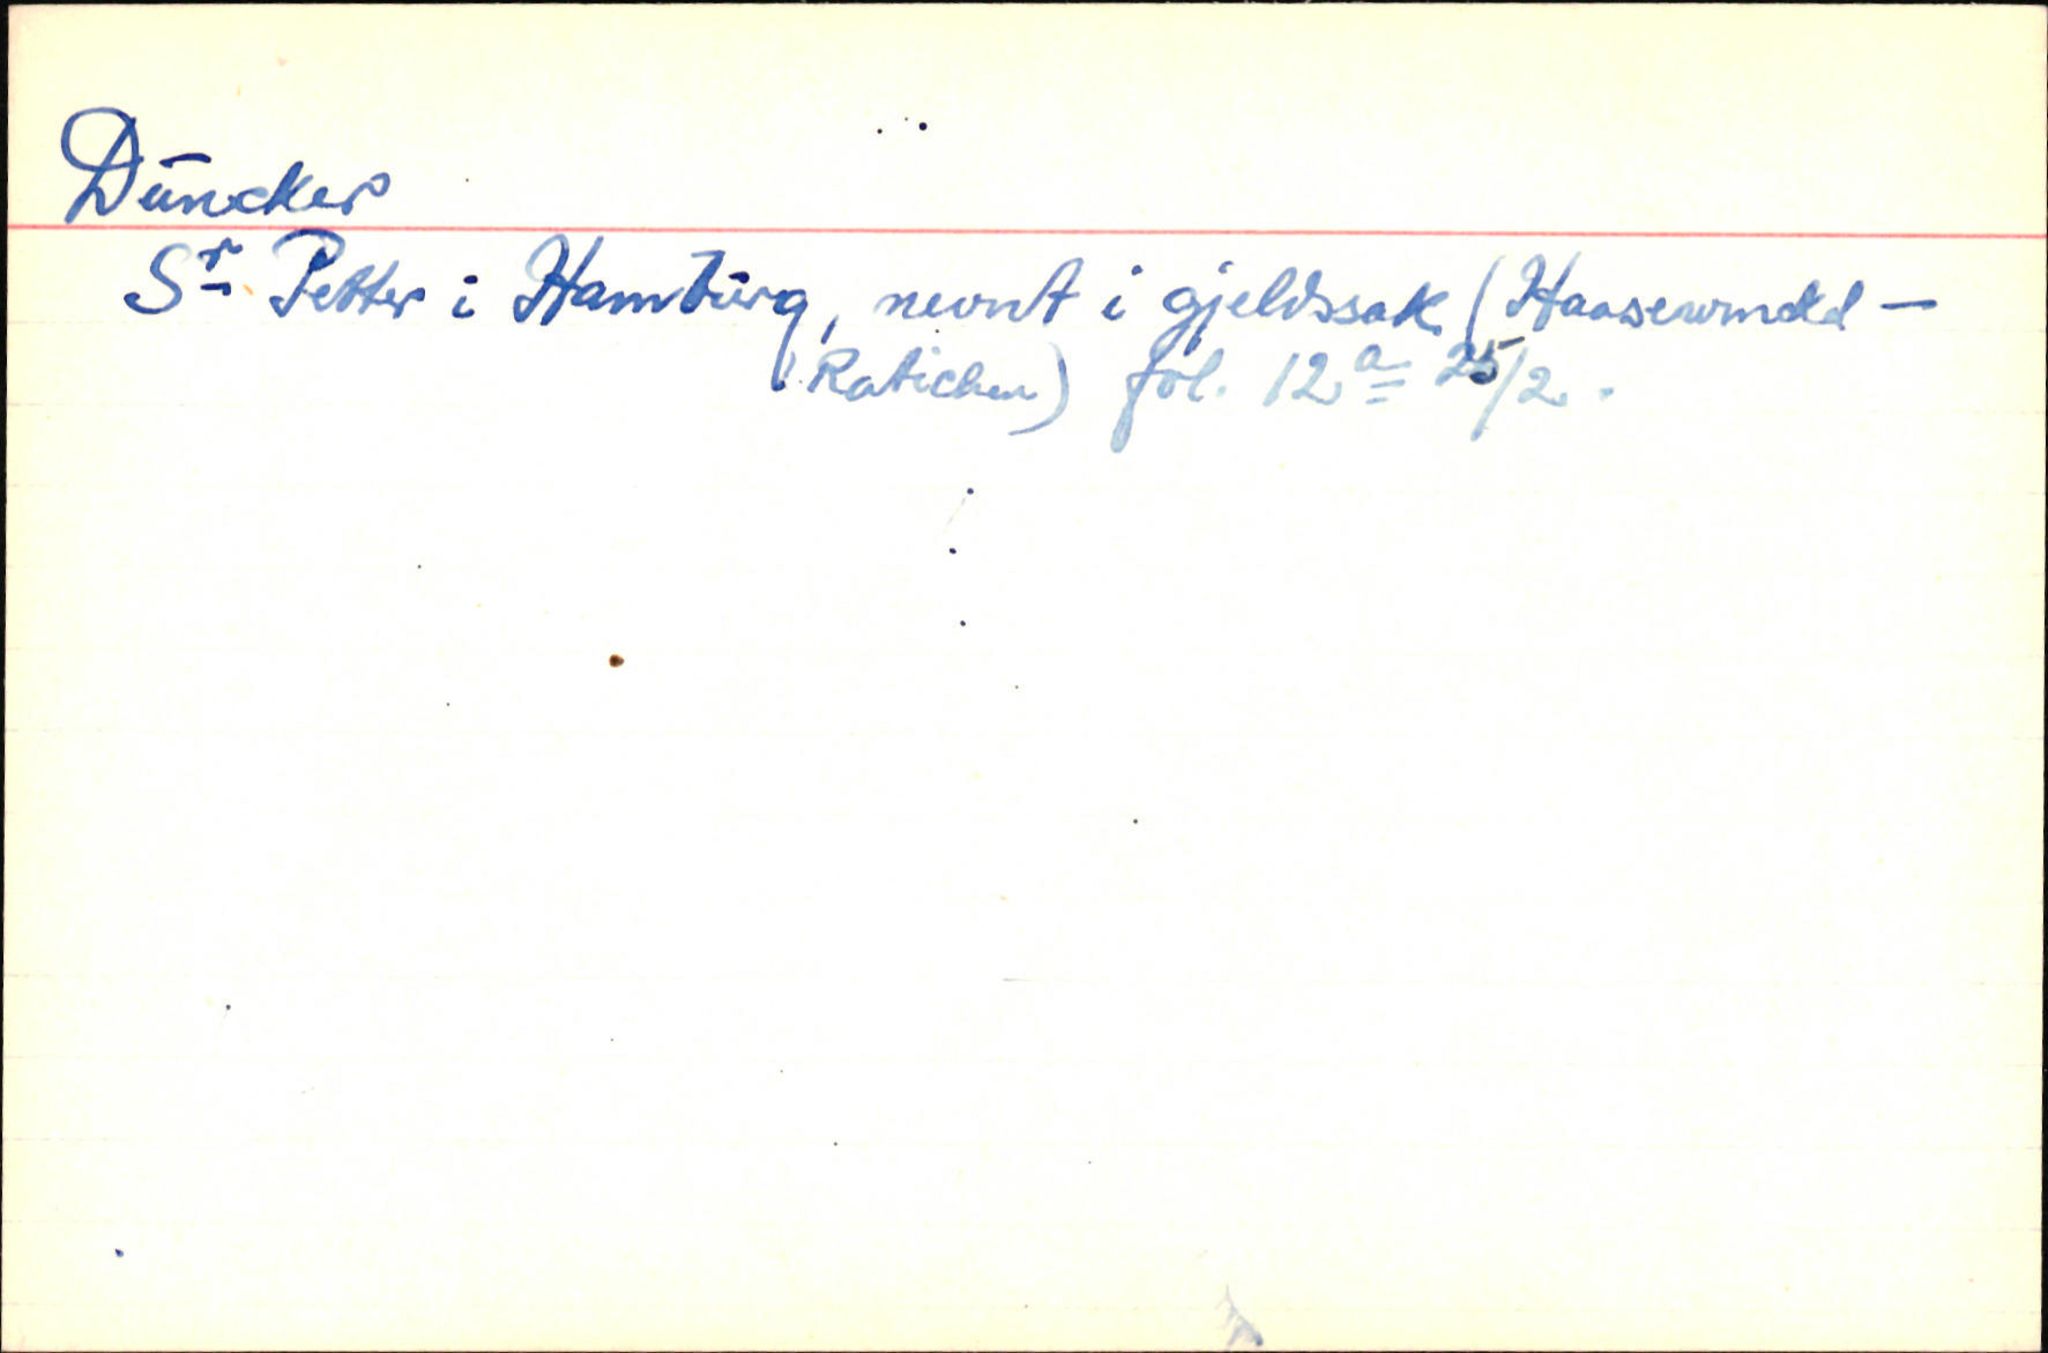 Duncker
Sr Petter i Hamburg, nevnt i gjeldssak (Haasewinckel –
Ratichen) fol. 12a 25/2.